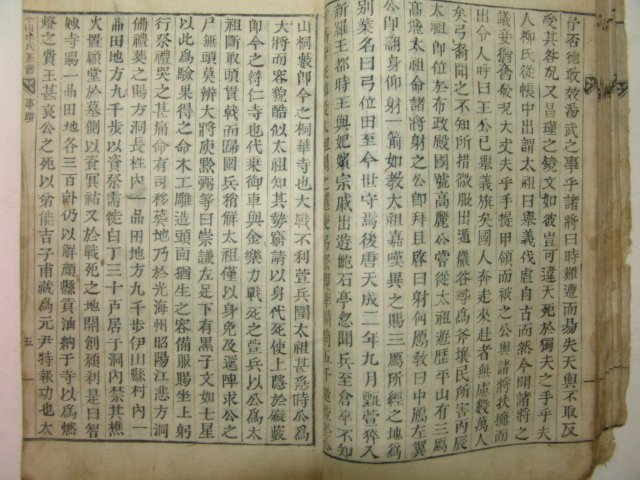 予否德敢效湯武之事乎諸將曰時難遭而易失天與不取反
受其咎况又昌瑾之鏡文如彼豈可違天死於獨夫之手乎夫
人柳氏從帳中出謂太祖曰舉義伐虐自古而然今聞諸將之
議妾猶奮發况大丈夫乎手提甲領而被之公與諸將扶擁而
出令人呼曰王公已舉義旗矣國人奔走來赴者無慮數萬人
矣弓裔聞之不知所措微服出遁巖谷尋爲斧壤民所害丙辰
太祖卽位於布政殿國號高麗公嘗從太祖遊歷平山有三鴈
高飛太祖命諸將射之公卽拜且啓曰射何鴈敎曰中鴈左翼
公卽翻身仰射一箭如教太祖嘉嘆異之賜三鴈所經之地爲
別業名曰弓位田至今世守焉後唐天成二年九月甄萱猝入
新羅王都時王與妃嬪宗戚出遊鮑石亭忽聞兵至倉卒不知
山桐藪卽今之桐華寺也大戰不利萱兵圍太祖甚急時公爲
大將而容貌酷似太祖知其勢窮請以身代死使上隱於礙藪
卽今之符仁寺也代乘御車與金樂力戰死之萱兵以公爲太
祖斷取頭貫戟而歸圍兵稍解太祖僅以身免及還陣求公之
尸無頭莫辨大將庾黔弼等曰崇謙左足下有黑子文如七星
以此爲驗果得之命木工雕造頭面猶生之容備服賜坐上躬
行祭禮哭之甚痛命有司移葬地乃於光海州昭陽江悲方洞
備禮葬之賜方洞長柱內一品田地方九千步伊山縣村內一
品田地方九千步以資祭需徙白丁三十戶居于洞內禁其樵
火置願堂於墓側以資冥祐又於戰死之地開創願刹是曰智
妙寺賜一品田地各三百卧仍以解顔縣貢油納于寺以爲燃
燈之費王甚哀公之死以弟能吉子甫藏爲元尹特報功也太
五